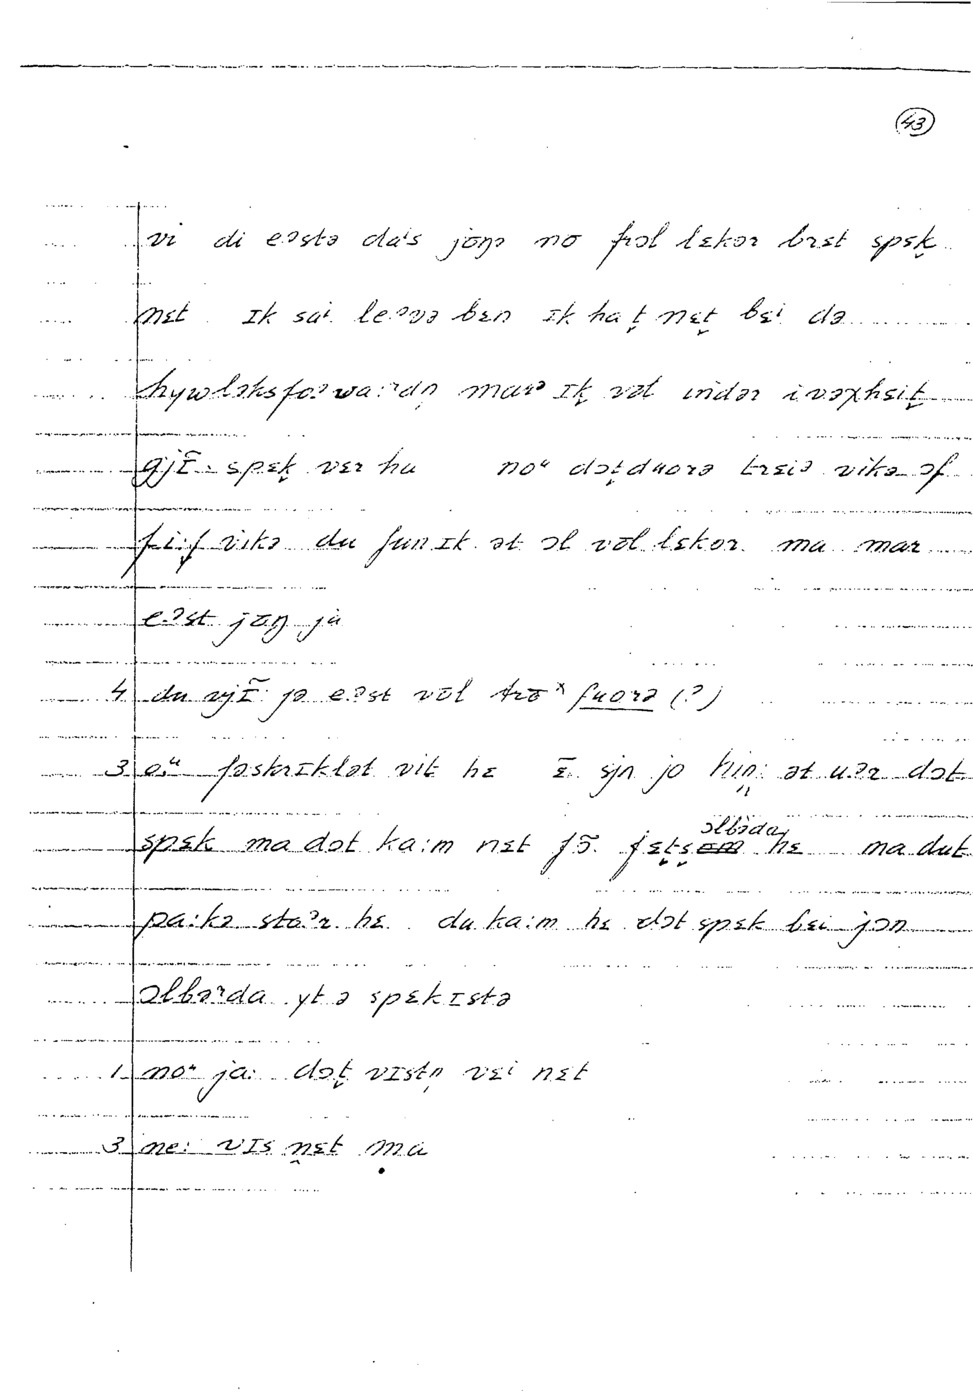 43
vi di eᵊstə daˑs jɔ̄ŋᵊ no frɔl lɛkər brɛt spɛk
nɛt ɪk saⁱ leᵊvə bɛn ɪk ha t̬ nɛt̬ bɛⁱ də
hywləksfoᵊwaːʳdn̩ marᵊ ɪk vəl indər ivəχhɛit̬
gjɪ̄ː spɛk ver ha noᵘ dɔt̬duorə trɛiᵊ vikə ɔf
fiːf vikə du fun ɪk ət ɔl vəl lɛkər ma mar
eᵊst jɔ̄ŋ ja
4 du vjɪ̄ː jə eᵊst vəl trɔˣ fuorə (?)
3 oːᵘ fəskrɪklət vit hɛ ɛ̄ː sjn jo hinː ət uᵊr dɔt
spɛk ma dɔt kaːm nɛt fɔ̄ː fɛt̬s̬ ɔlbədaː hɛ ma dut
paːkə stɔᵊr hɛ du kaːm hɛ dɔt spɛk bɛi jɔn
ɔlbəʳda yt ə spɛkɪstə
1 noᵘ jaː dɔt̬ vɪstn̩ vɛⁱ nɛt
3 neː vɪs nɛt ma